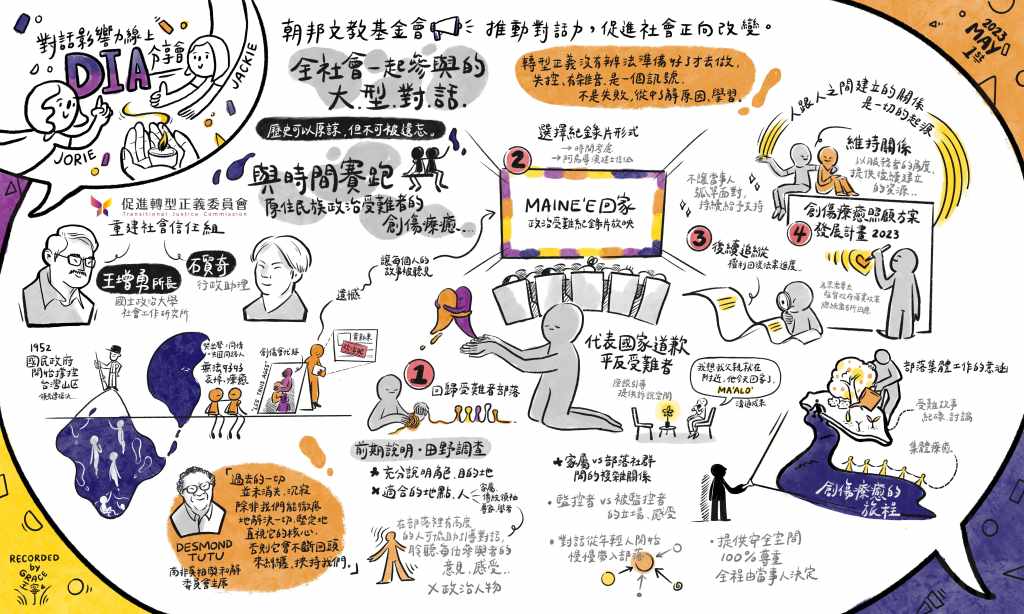 對話影響力線上
分享會
DIA
JACKIE
JORIE
朝邦文教基金會
推動對話力,促進社會正向改變。
2023
MAY
1st
全社會一起參與的
大.型.對.話.
歷史可以原諒,但不可被遺忘。
轉型正義沒有辦法準備好了才去做,
失控、有雜音,是一個訊號
不是失敗,從中了解原因、學習.
人跟人之間建立的關係
是一切的起源
維持關係
以服務者的角度,
提供後續建立
的資源...
與時間賽跑
原住民族政治受難者的
創傷療癒...
選擇紀錄片形式
→時間考慮
2
MAINE'E回家
政治受難紀錄片放映
不讓當事人
孤單面對,
持續給予支持
3
後續追蹤
權利回復法案進度...
4
創傷療癒照顧方案
發展計畫 2023
促進轉型正義委員會
Transitional Justice Commission
重建社會信任組
王增勇所長
國立政治大學
社會工作研究所
石賀奇
行政助理
讓每個人的
故事被聽見
遺憾
1952
國民政府
開始掌控
台灣山區
無法好好
哀悼、療癒
創傷會代際
1
回歸受難者部落
代表國家道歉
平反受難者
座談引導
提供訴說空間
我想我父親就在
附近,他今天回家了,
MA'ALO'
溝通成果
部落集體工作的意涵
受難故事
紀錄、討論
集體療癒
創傷療癒的
旅程
前期說明・田野調查
充分說明角色、目的地
適合的地點、人
家屬、
傳統領袖
耆老、學者
在部落裡有高度
的人可協助引導對話,
聆聽每位參與者的
意見、感受...
X政治人物
家屬vs部落社群
間的複雜關係
・監控者 vs 被監控者
的立場、感受
・對話從年輕人開始
慢慢帶入部落
・提供安全空間
100%尊重
全程由當事人決定
「過去的一切
並未消失、沉寂
除非我們能徹底
地解決一切,堅定地
直視它的核心,
否則它會不斷回頭
來糾纏、挾持我們。」
DESMOND
TUTU
南非真相與和解
委員會主席
RECORDED
by
GRACE